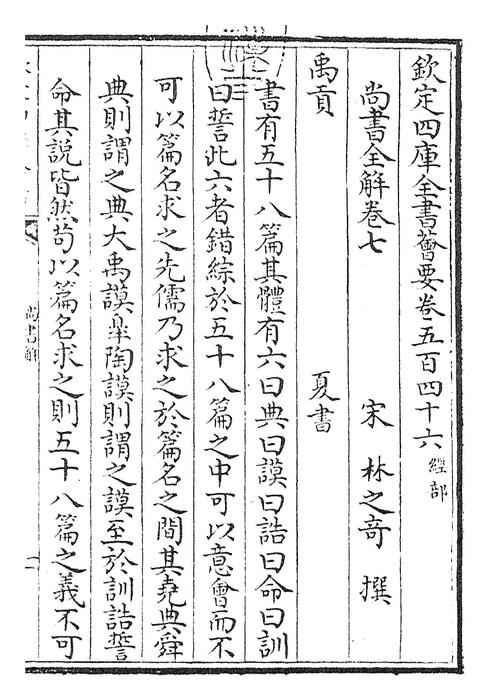 欽定四庫全書薈要卷五百四十六 經部
尚書全解卷七
宋 林之竒 撰
禹貢
夏書
書有五十八篇其體有六曰典曰謨曰誥曰命曰訓
曰誓此六者錯綜於五十八篇之中可以意會而不
可以篇名求之先儒乃求之於篇名之間其堯典舜
典則謂之典大禹謨臯陶謨則謂之謨至於訓誥誓
命其說皆然苟以篇名求之則五十八篇之義不可
尚書解
一